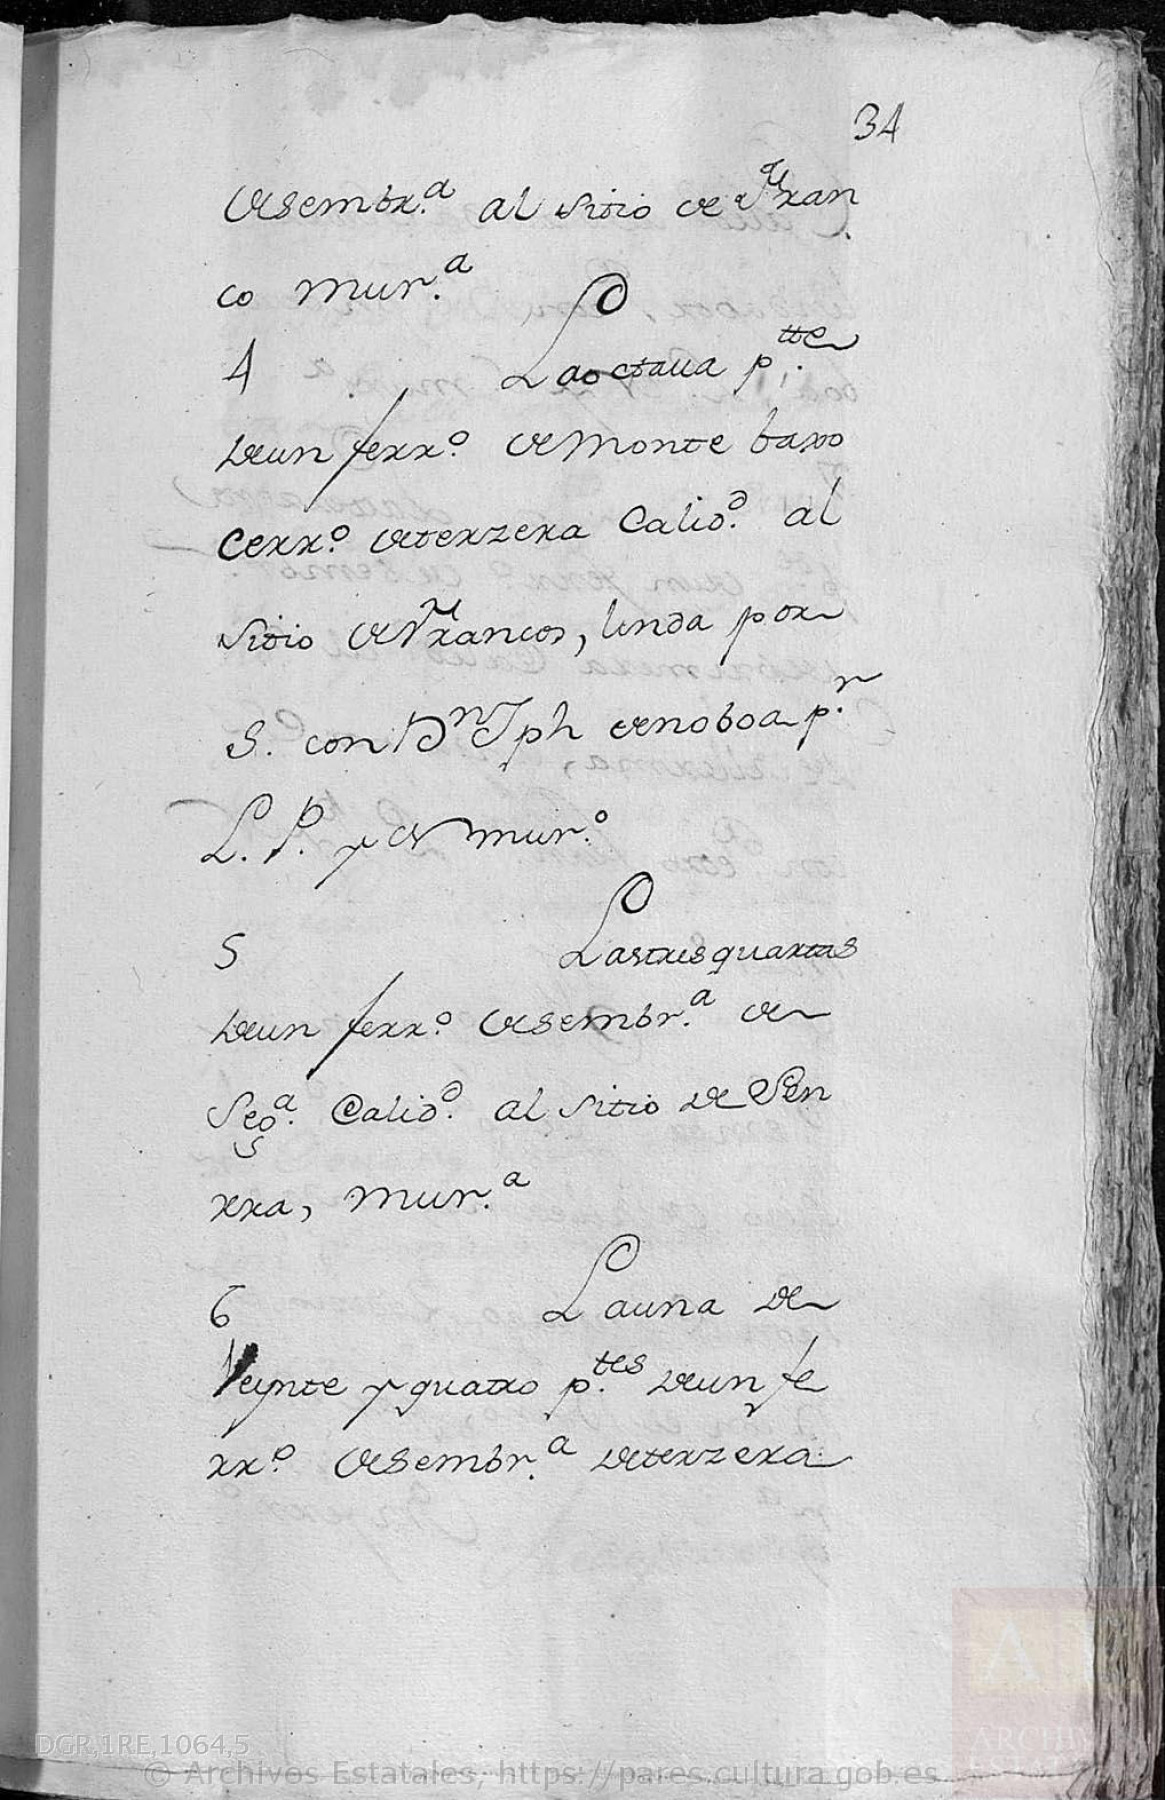 34
desembr.ª al sitio de Fran
co mur.ª
4 La octaua p.tte
deun ferr.º de monte baxo
Cerr.º de terzera Calid.d al
sitio de Francos, linda por
S. con D.n Jph de noboa p.r
L. P. y N mur.º
5 Las tres quartas
deun ferr.º desembr.ª de
Seg.ª Calid.d al sitio de Sen
rra, mur.ª
6 La una de
Veynte y quatro p.tes deun fe
rr.º desembr.ª de terzera
DGR,1RE,1064,5
© Archivos Estatales, https://pares.cultura.gob.es